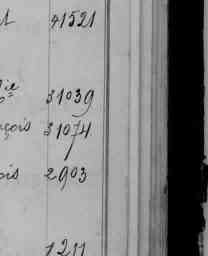 t 41521
ie 31039
çois 31074
ois 2903
1211